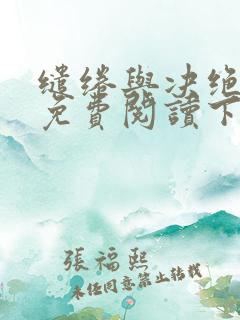 缱绻與决绝
免費閱讀下
張福熙
未經同意禁止转载